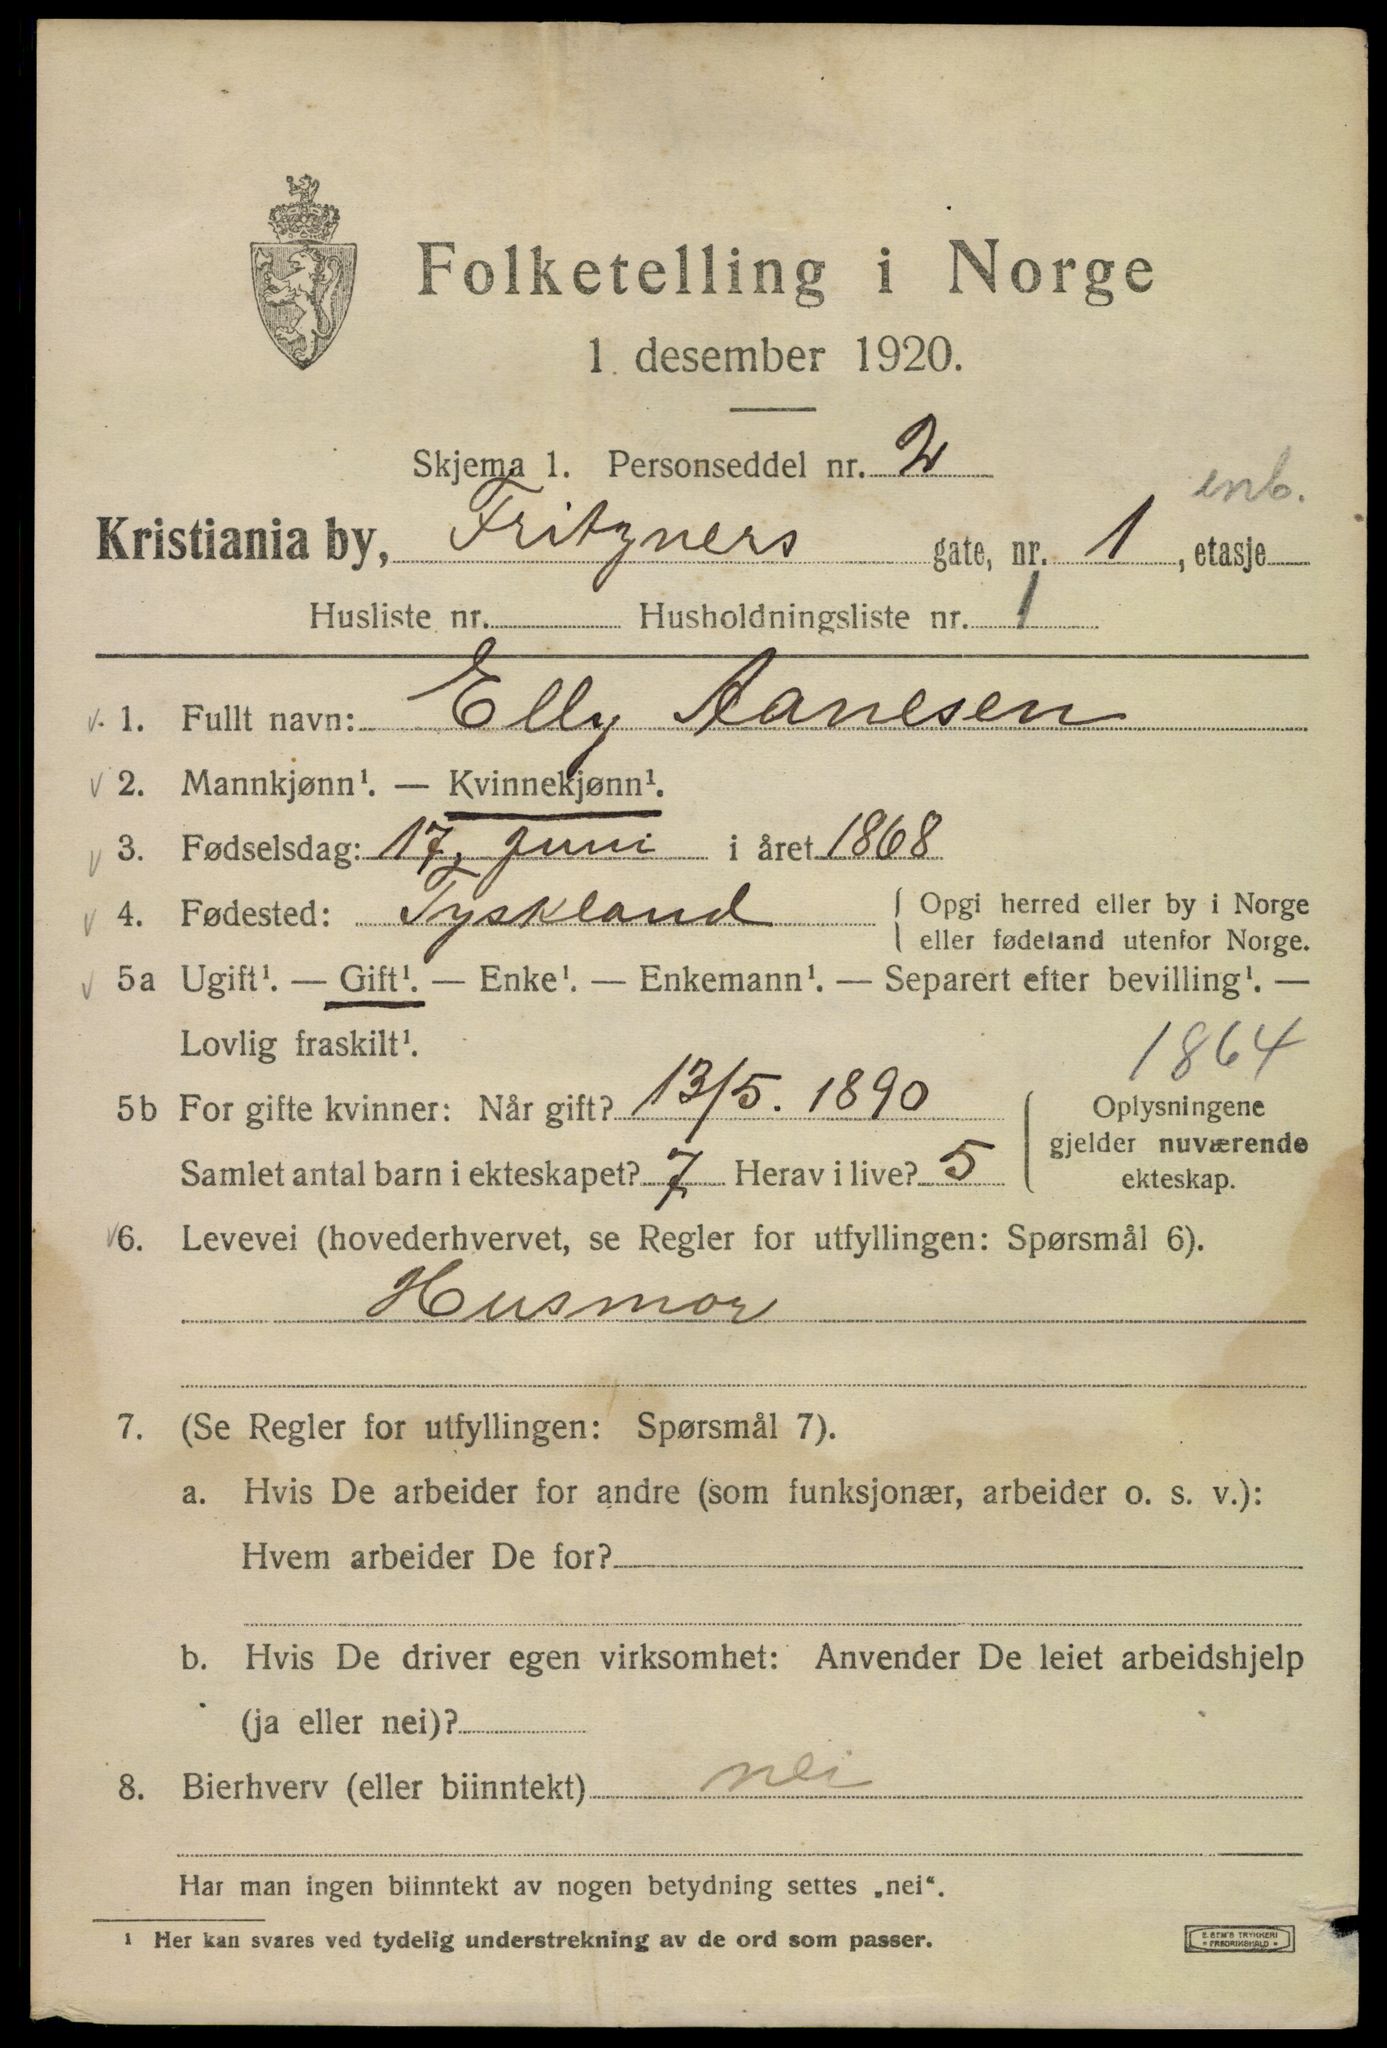 Folketelling i Norge
1. desember 1920.
Skjema 1. Personseddel nr. 2
enb.
Kristiania by, Fritzners gate, nr. 1, etasje
Husliste nr. Husholdningsliste nr. 1
v. 1. Fullt navn: Elly Aanesen
v 2. Mannkjønn¹. — Kvinnekjønn¹.
v 3. Fødselsdag: 17. juni i året 1868
v 4. Fødested: Tyskland { Opgi herred eller by i Norge
eller fødeland utenfor Norge.
v 5a Ugift¹. — Gift¹. — Enke¹. — Enkemann¹. — Separert efter bevilling¹. —
Lovlig fraskilt¹.
1864
5b For gifte kvinner: Når gift? 13/5. 1890
Samlet antal barn i ekteskapet? 7 Herav i live? 5
{ Oplysningene
gjelder nuværende
ekteskap.
v 6. Levevei (hovederhvervet, se Regler for utfyllingen: Spørsmål 6).
Husmor
7. (Se Regler for utfyllingen: Spørsmål 7).
a. Hvis De arbeider for andre (som funksjonær, arbeider o. s. v.):
Hvem arbeider De for?
b. Hvis De driver egen virksomhet: Anvender De leiet arbeidshjelp
(ja eller nei)?
8. Bierhverv (eller biinntekt) nei
Har man ingen biinntekt av nogen betydning settes „nei“.
¹ Her kan svares ved tydelig understrekning av de ord som passer.
E. SEM'S TRYKKERI
FREDRIKSHALD